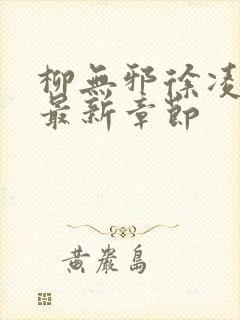 柳無邪徐凌
最新章節
黃巖島